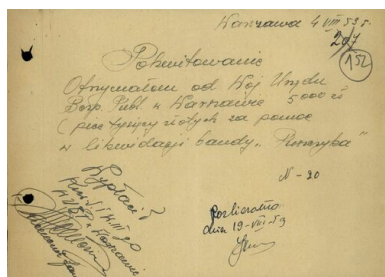 Warszawa 4 VIII 53 r.
207
152
Pokwitowanie
Otrzymałem od Woj Urzędu
Bezp. Publ. w Warszawie 5000 zł
(pięc tysięcy złotych za pomoc
w likwidacji bandy „Huzaryka"
N-20
Wypłacił
w Warszawie
Rozliczono
dnia 19-VIII-53